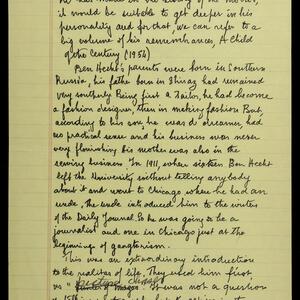 it would be suitable to get deeper in his
personality and for that, we can refer to a
big volume of his remembrances, A child
of the Century (1954)
Ben Hecht's parents were born in Southern
Russia, his father born in Minsk had remained
very southerly. Being first a tailor, he had become
a fashion designer, then in making fashion But,
according to his son, he was a dreamer, had
no practical sense and his business was never
very flourishing his mother was also in the
sewing business. In 1911, when sixteen Ben Hecht
left the University without telling anybody
about it and went to Chicago where he had an
uncle. The uncle introduced him to the writers
of the Daily Journal. So he was going to be a
journalist and one in Chicago just at the
beginning of gangsterism.
This was an extraordinary introduction
to the realities of life. They used him first
as "
was not a question